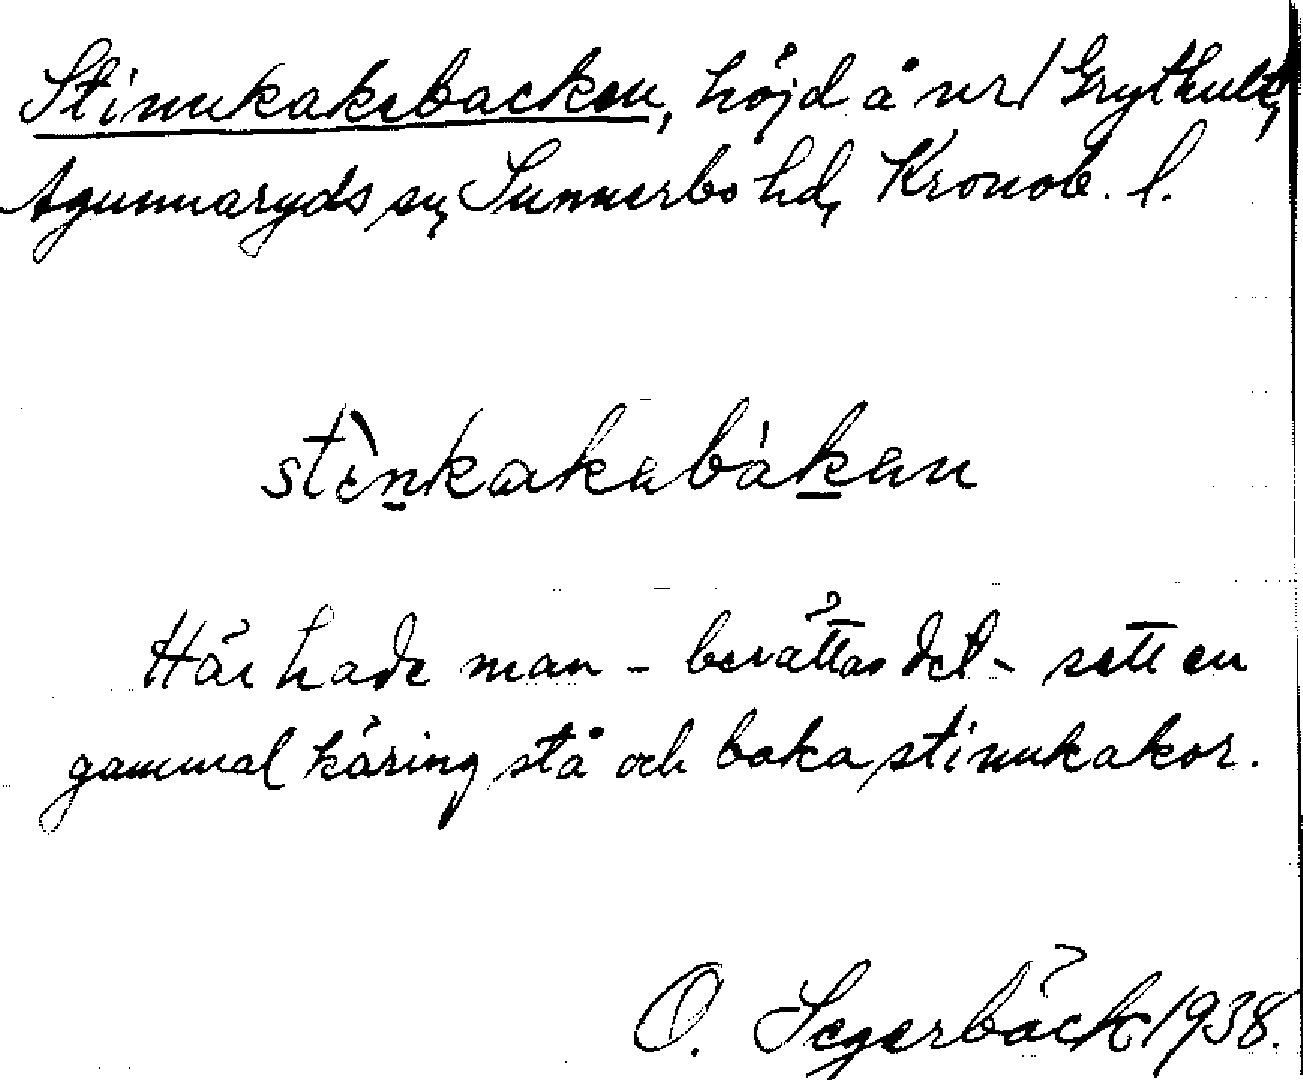 Stinnkakebacken, höjd å nr 1 Grythult,
Agunnaryds sn, Sunnerbo hd, Kronob. l.
stènkakabákan
Här hade man - berättas det - sett en
gammal käring stå och baka stinnkakor.
O. Segerbäck 1938.